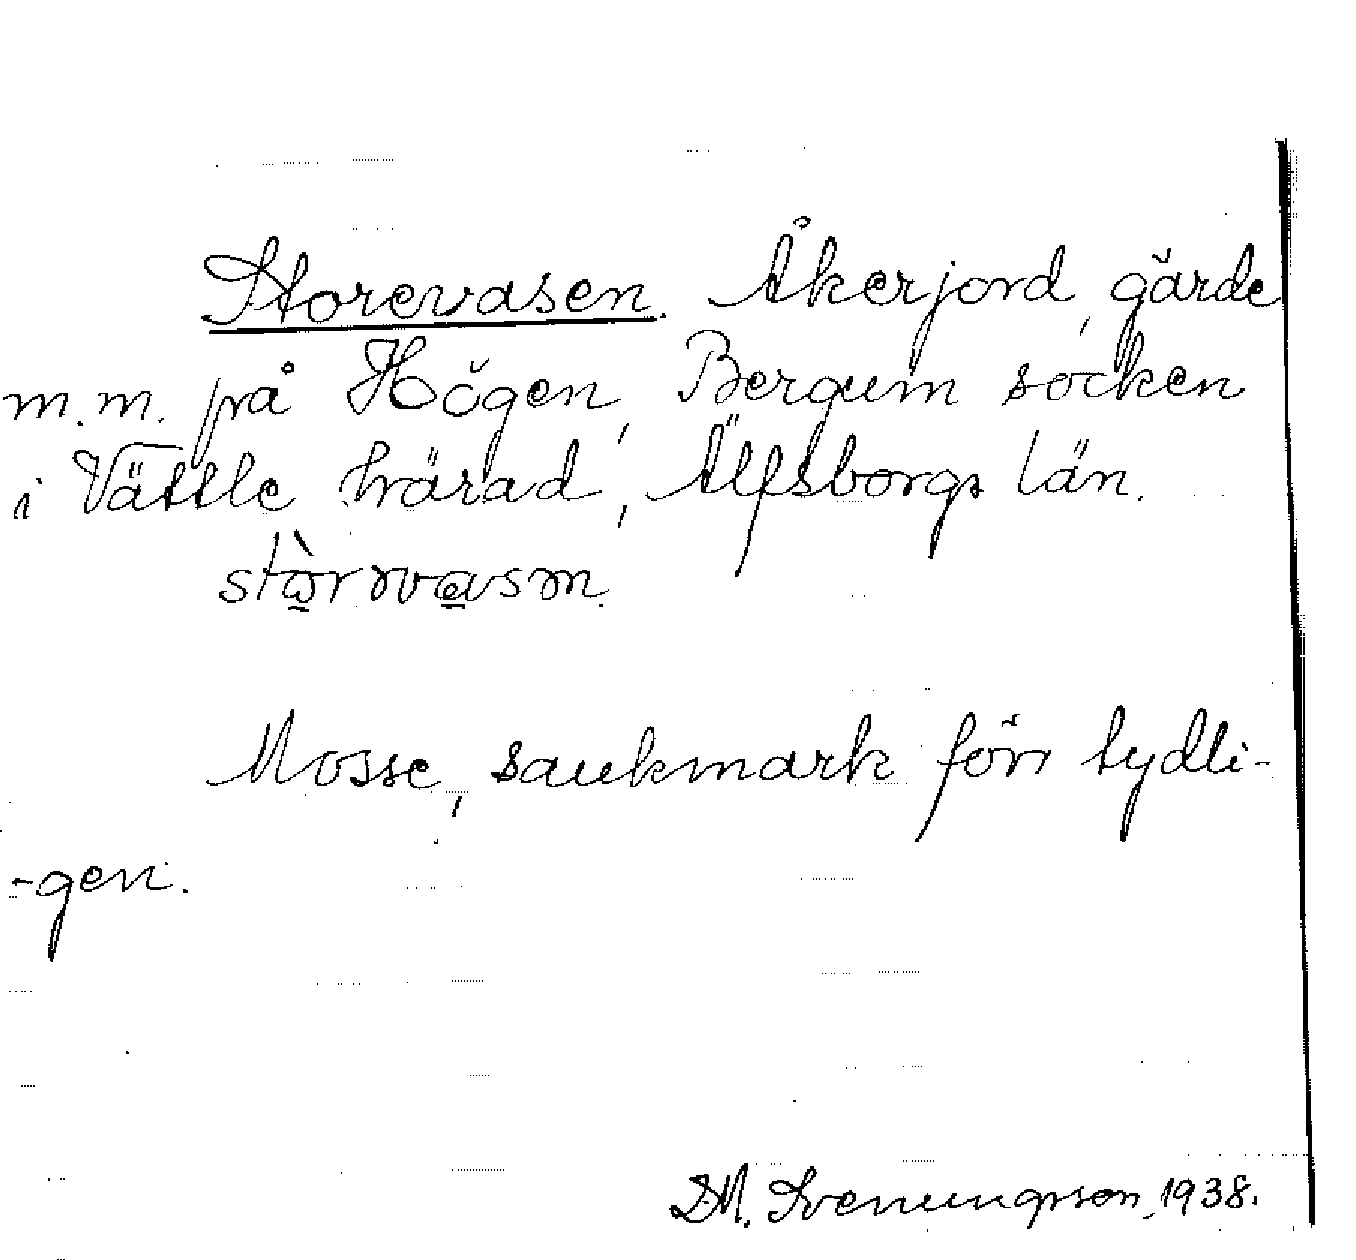 Storevasen. Åkerjord, gärde
m.m. på Högen, Bergum socken
i Vättle härad, Älfsborgs län.
Mosse, sankmark förr tydli-
-gen.
D.M. Svenungsson, 1938.